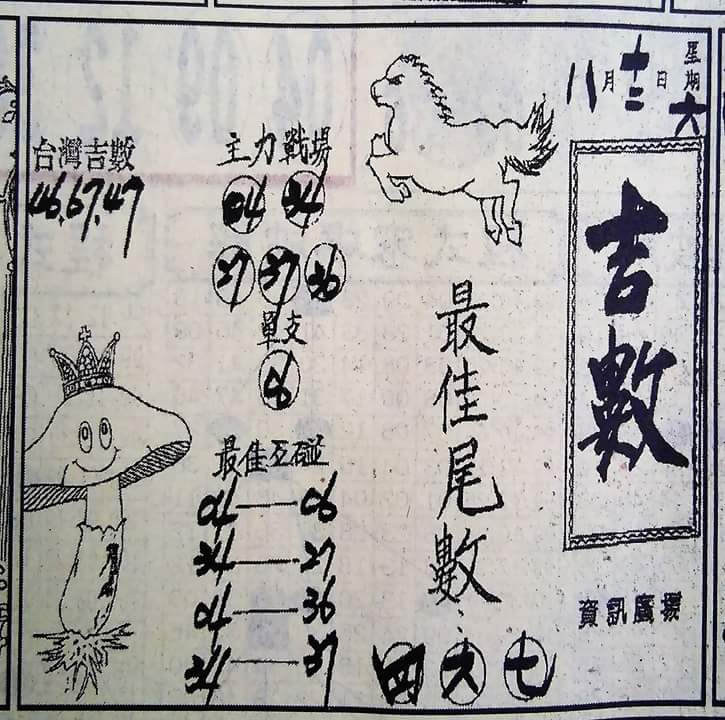 八月十二日 星期六
吉數
資訊廣場
最佳尾數:
四 六 七
主力戰場
04 34
27 37 36
單支
06
最佳互碰
04——06
34——27
04——36
34——37
台灣吉數
46.67.47